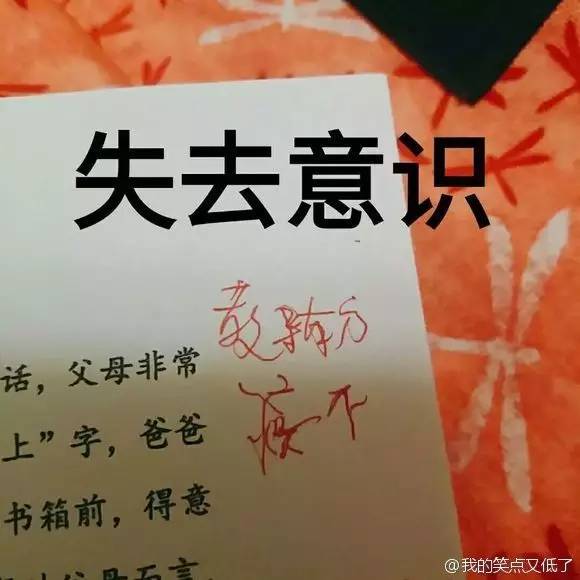 失去意识
话，父母非常
上”字，爸爸
书箱前，得意
父母而言，
@我的笑点又低了